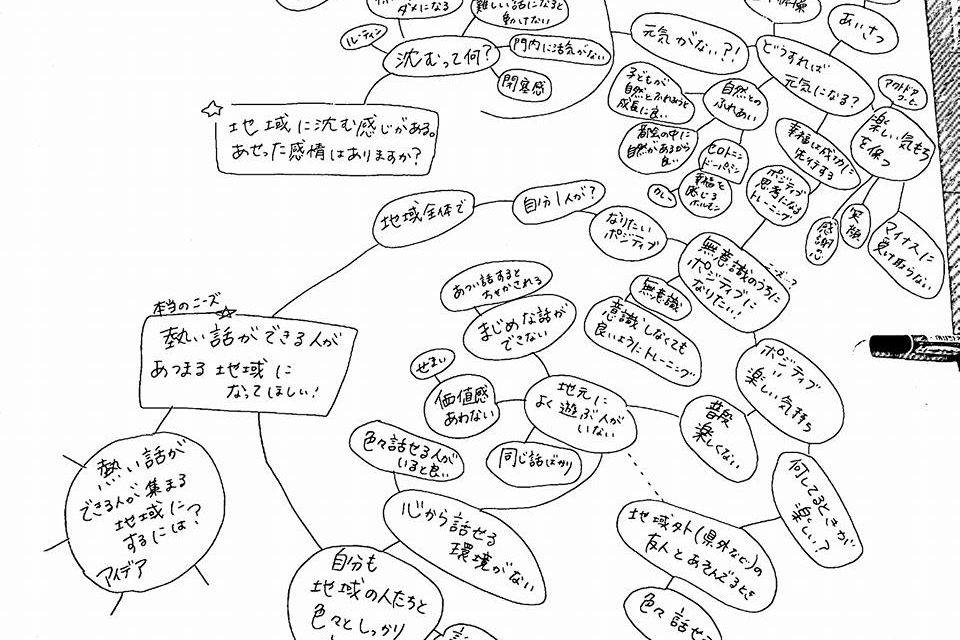 ダメになる
難しい話になると
動けない
ルーティン
沈むって何?
門内に活気がない
閉塞感
元気がない?!
どうすれば
元気になる?
あいさつ
アウトドア
楽しい気もち
を保つ
子どもが
自然とふれあうと
成長に良い
自然との
ふれあい
都会の中に
自然があるから
良い
セロトニン
ドーパミン
幸福を
感じる
ホルモン
カレー
幸福は成功に
先行する
ポジティブ
思考になる
トレーニング
感謝の心
笑顔
マイナスに
受け取らない
地域に沈む感じがある。
あせった感情はありますか?
地域全体で
自分1人が?
なりたい
ポジティブ
ニーズ…?
無意識のうちに
ポジティブに
なりたい!
無意識
意識しなくても
良いようにトレーニング
あつい話すると
ちゃかされる
まじめな話が
できない
せまい
価値感
あわない
地元に
よく遊ぶ人が
いない
同じ話ばかり
色々話せる人が
いると良い
普段
楽しくない
ポジティブ
=
楽しい気持ち
何してるときが
楽しい?
本当のニーズ
熱い話ができる人が
あつまる地域に
なってほしい!
熱い話が
できる人が集まる
地域に
するには?
アイデア
心から話せる
環境がない
地域外(県外など)の
友人とあそんでるとき
色々話せる
自分も
地域の人たちと
色々としっかり